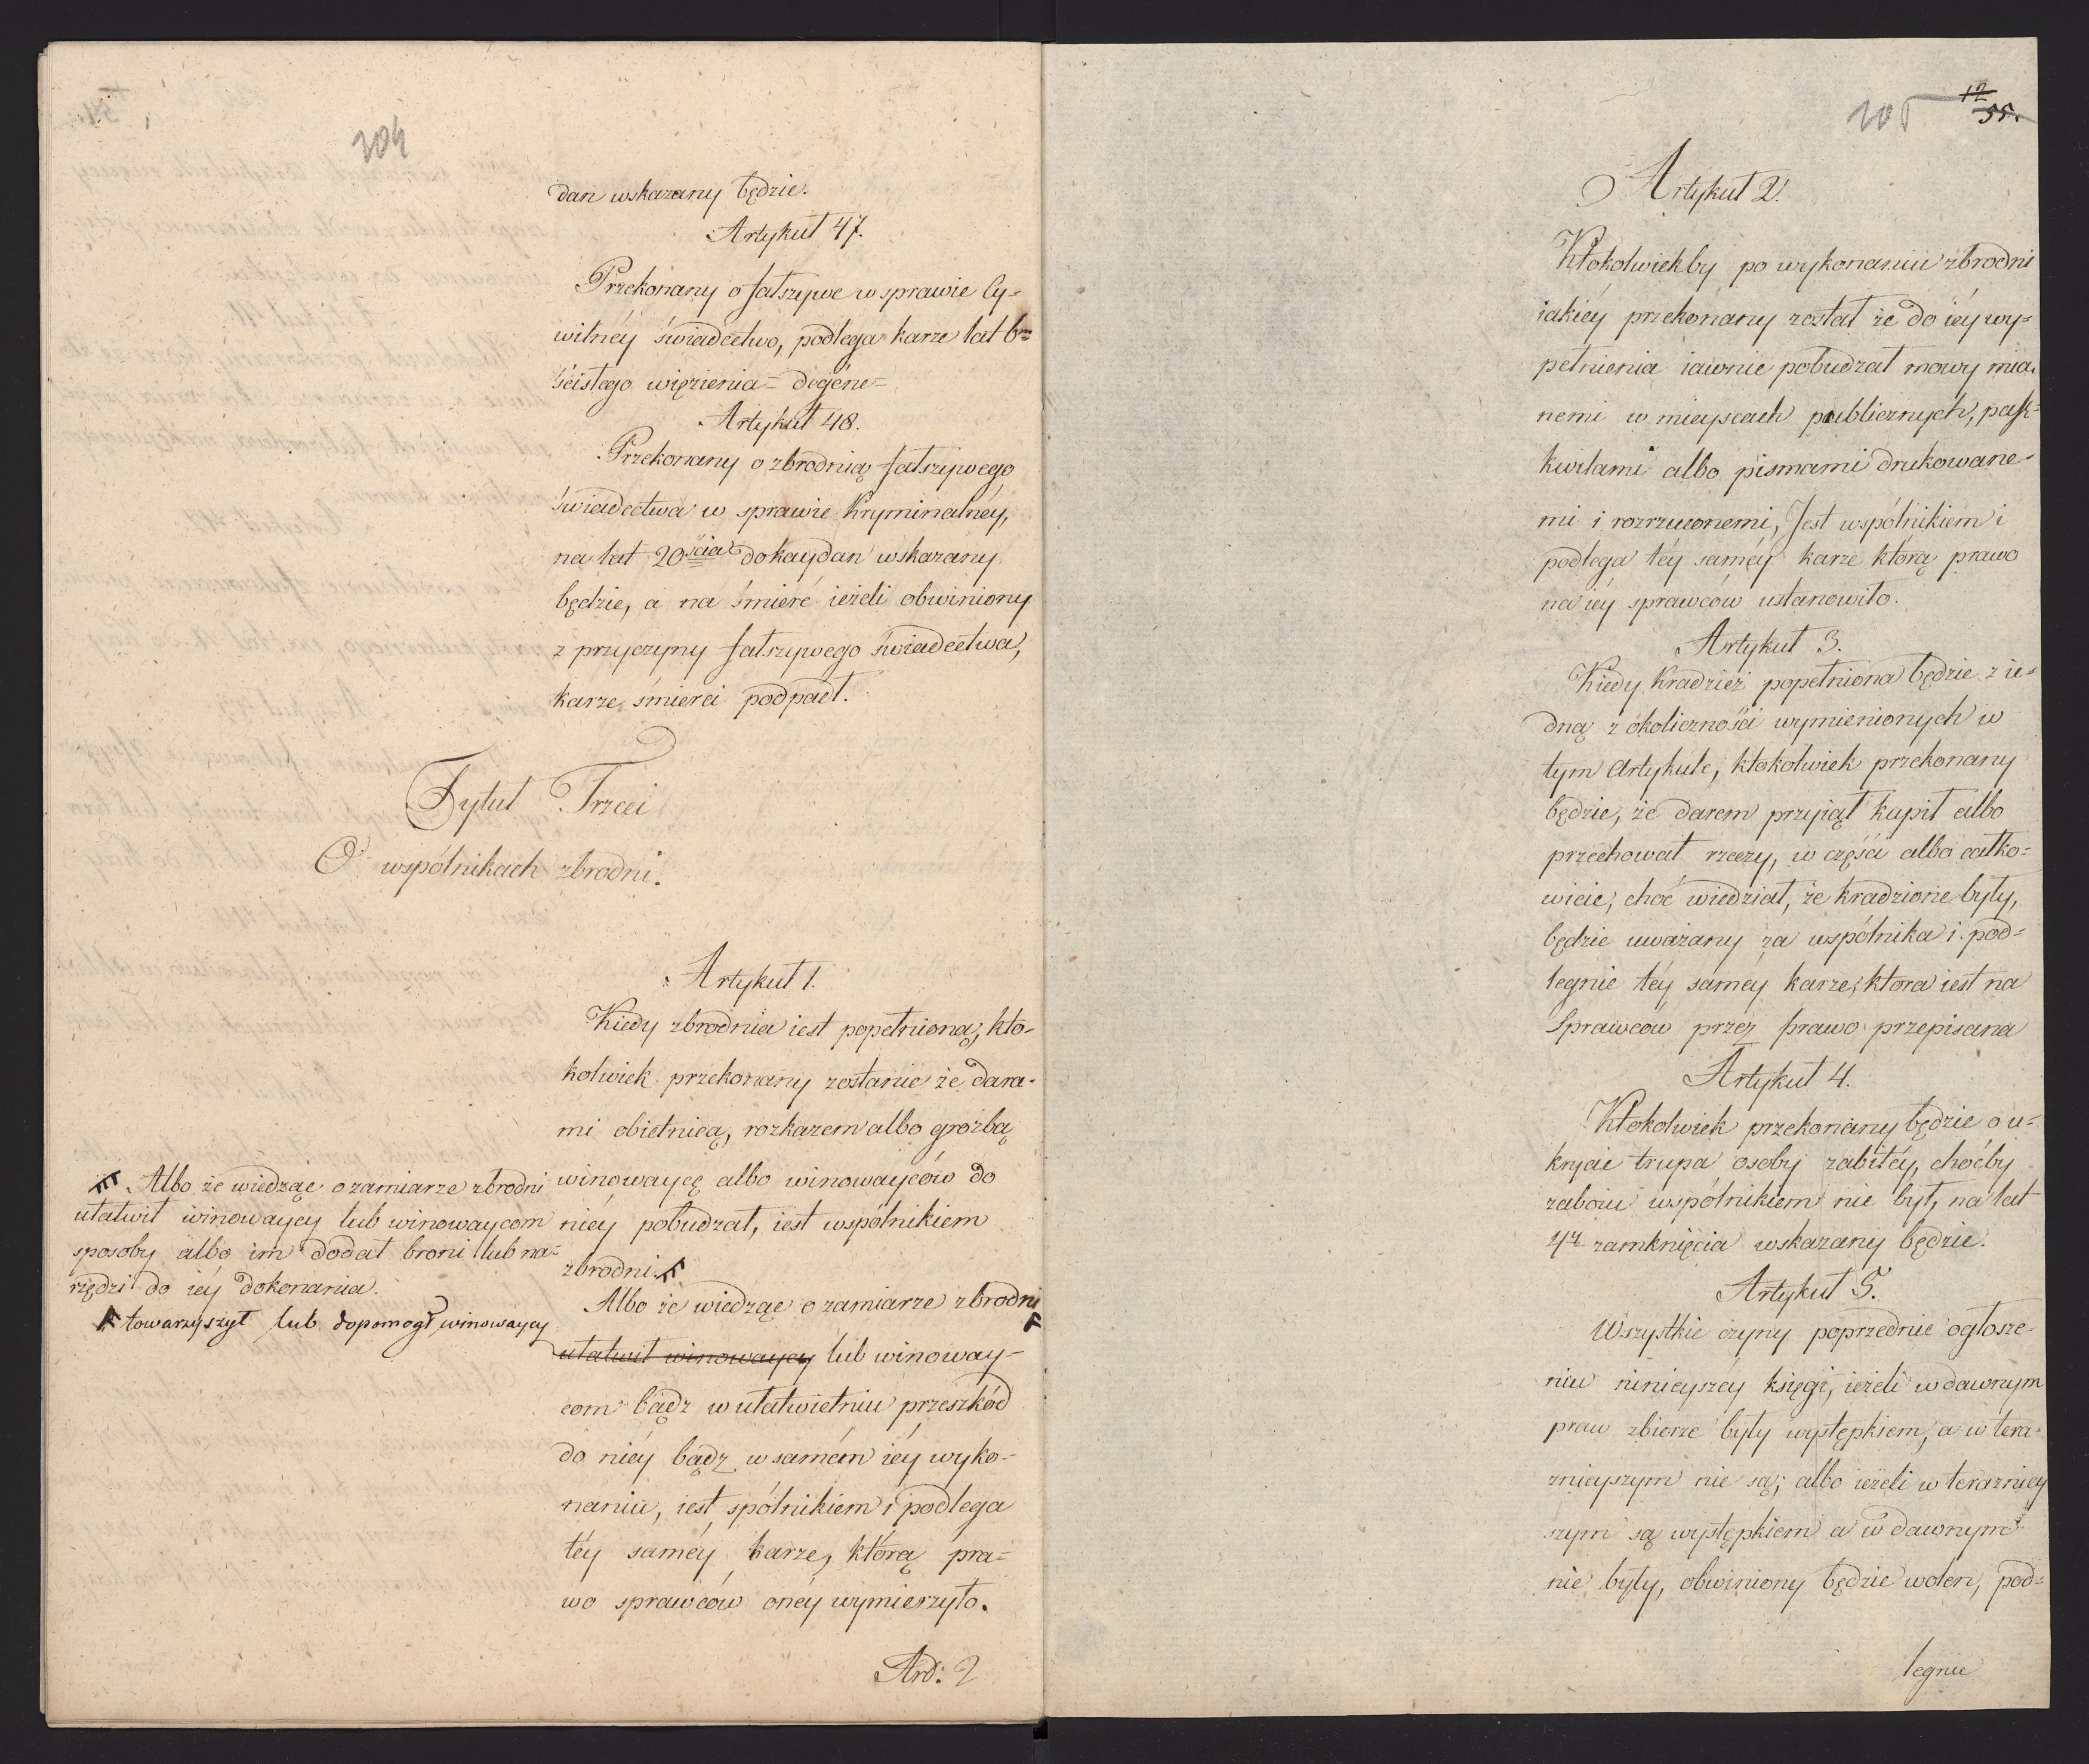 204
dan wskazany będzie.
Artykuł 47.
Przekonany o fałszywe w sprawie Cy=
wilnéy świadectwo, podlega karze lat 6ciu
ścisłego więzienia = degéne =
Artykuł 48.
Przekonany o zbrodnią fałszywego
świadectwa w sprawie Kryminalnéy,
na lat 20ścia do kaydan wskazany
będzie, a na śmierć ieżeli obwiniony
z przyczyny fałszywego świadectwa,
karze śmierci podpadł.
Tytuł Trzeci
O wspólnikach zbrodni.
Artykuł 1.
Kiedy zbrodnia iest popełnioną, kto-
kolwiek przekonany zostanie że dara-
mi obietnicą, rozkazem albo groźbą
winowaycę albo winowayców do
niéy pobudzał, iest wspólnikiem
zbrodni.
Albo że wiedząc o zamiarze zbrodni
ułatwił winowaycy lub winoway-
com bądz w ułatwiełniu przeszkód
do niéy bądz w samém iéy wyko-
naniu, iest spólnikiem i podlega
téy saméy karze, którą pra=
wo sprawców onéy wymierzyło.
Albo że wiedząc o zamiarze zbrodni
ułatwił winowaycy lub winowaycom
sposoby albo im dodał broni lub na=
rzędzi do iéy dokonania.
towarzyszył lub dopomogł winowaycy
Ard: 2
205
12
55.
Artykuł 2.
Ktokolwiekby po wykonaniu zbrodni
iakiéy przekonany został że do iéy wy=
pełnienia iawnie pobudzał mowy mia.
nemi w mieyscach publicznych, pask=
kwilami albo pismami drukowane-
mi i rozrzuconemi, Jest wspólnikiem i
podlega téy saméy karze którą prawo
na iéy sprawców ustanowiło.
Artykuł 3.
Kiedy Kradzież popełniona będzie z ie=
dną z okoliczności wymienionych w
tym Artykule, ktokolwiek przekonany
będzie, że darem przyiął kupił albo
przechował rzeczy, w części albo całko=
wicie, choć wiedział, że kradzione były,
będzie uważany za wspólnika i pod=
legnie téy saméy karze, która iest na
Sprawców przez prawo przepisana
Artykuł 4.
Ktokolwiek przekonany będzie o u=
krycie trupa osoby zabitéy, choćby
zaboiu wspólnikiem nie był, na lat
4ry zamknięcia wskazany będzie.
Artykuł 5.
Wszystkie czyny poprzednie ogłosze-
niu ninieyszéy księgi, ieżeli w dawnym
praw zbiorze były występkiem, a w tera-
znieyszym nie są; albo ieżeli w terazniey
szym są występkiem a w dawnym
nie były, obwiniony będzie wolen, pod=
legnie